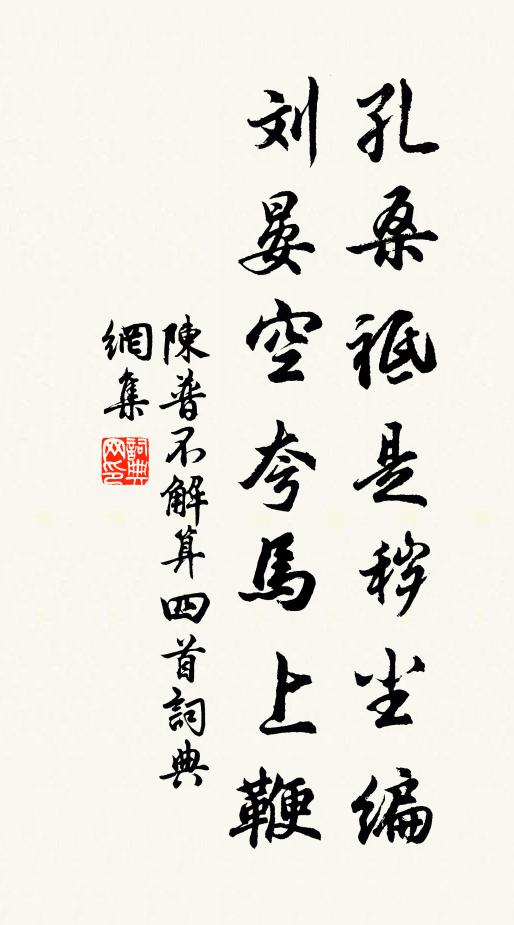 孔桑祗是秽尘編
刘晏空夸馬上鞭
陳普不解算四首詞典
網集
詞典
网印